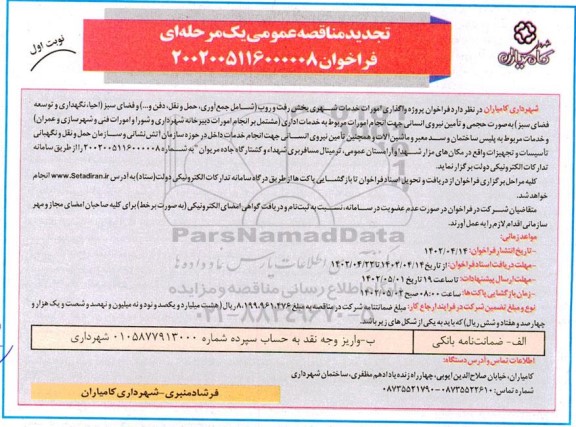 تجدید مناقصه عمومی یک مرحله‌ای
فراخوان ۲۰۰۲۰۰۵۱۱۶۰۰۰۰۰۸
نوبت اول
شهرداری کامیاران
شهرداری کامیاران در نظر دارد فراخوان پروژه واگذاری امورات خدمات شهری بخش رفت و روب (شامل جمع‌آوری، حمل و نقل، دفن و...) و فضای سبز (احیا، نگهداری و توسعه
فضای سبز) به صورت حجمی و تأمین نیروی انسانی جهت انجام امورات مربوط به خدمات اداری (مشتمل بر انجام امورات دبیرخانه شهرداری و شورا و امورات فنی و شهرسازی و عمران)
و خدمات مربوط به پلیس ساختمان و سد معبر و ماشین آلات و همچنین تأمین نیروی انسانی جهت انجام خدمات داخل در حوزه سازمان آتش‌نشانی و سازمان حمل و نقل و نگهبانی
تأسیسات و تجهیزات واقع در مکان‌های مزار شهدا و آرامستان عمومی، ترمینال مسافربری شهدا و کشتارگاه جاده مریوان "به شماره ۲۰۰۲۰۰۵۱۱۶۰۰۰۰۰۸ را از طریق سامانه
تدارکات الکترونیکی دولت برگزار نماید.
کلیه مراحل برگزاری فراخوان از دریافت و تحویل اسناد فراخوان تا بازگشایی پاکت‌ها از طریق درگاه سامانه تدارکات الکترونیکی دولت (ستاد) به آدرس www.Setadiran.ir انجام
خواهد شد.
متقاضیان شرکت در فراخوان در صورت عدم عضویت در سامانه، نسبت به ثبت‌نام و دریافت گواهی امضای الکترونیکی (به صورت برخط) برای کلیه صاحبان امضای مجاز و مهر
سازمانی اقدام لازم را به عمل آورند.
مواعد زمانی:
- تاریخ انتشار فراخوان: ۱۴۰۲/۰۴/۱۴
- مهلت دریافت اسناد فراخوان: از تاریخ ۱۴۰۲/۰۴/۱۴ تا ۱۴۰۲/۰۴/۲۲
- مهلت ارسال پیشنهادات: تا ساعت ۱۹ تاریخ ۱۴۰۲/۰۵/۰۱
- زمان بازگشایی پاکت‌ها: ساعت ۰۸:۰۰ صبح ۱۴۰۲/۰۵/۰۲
نوع و مبلغ تضمین شرکت در فرایند ارجاع کار: مبلغ ضمانتنامه شرکت در مناقصه به مبلغ ۸،۱۹۹،۹۶۱،۴۷۶ ریال (هشت میلیارد و یکصد و نود و نه میلیون و نهصد و شصت و یک هزار و
چهارصد و هفتاد و شش ریال) که باید به یکی از شکل‌های زیر باشد.
الف- ضمانت‌نامه بانکی
ب- واریز وجه نقد به حساب سپرده شماره ۰۱۰۵۸۷۷۹۱۳۰۰۰ شهرداری
اطلاعات تماس و آدرس دستگاه:
کامیاران، خیابان صلاح‌الدین ایوبی، چهارراه زنده یاد ادهم مظفری، ساختمان شهرداری
شماره تماس: ۰۸۷۳۵۵۲۲۶۱۰ - ۰۸۷۳۵۵۲۱۷۹۰
فرشاد منبری - شهرداری کامیاران
ParsNamadData
پایگاه اطلاع رسانی مناقصه و مزایده
۰۲۱-۸۸۳۴۹۶۷۰-۵